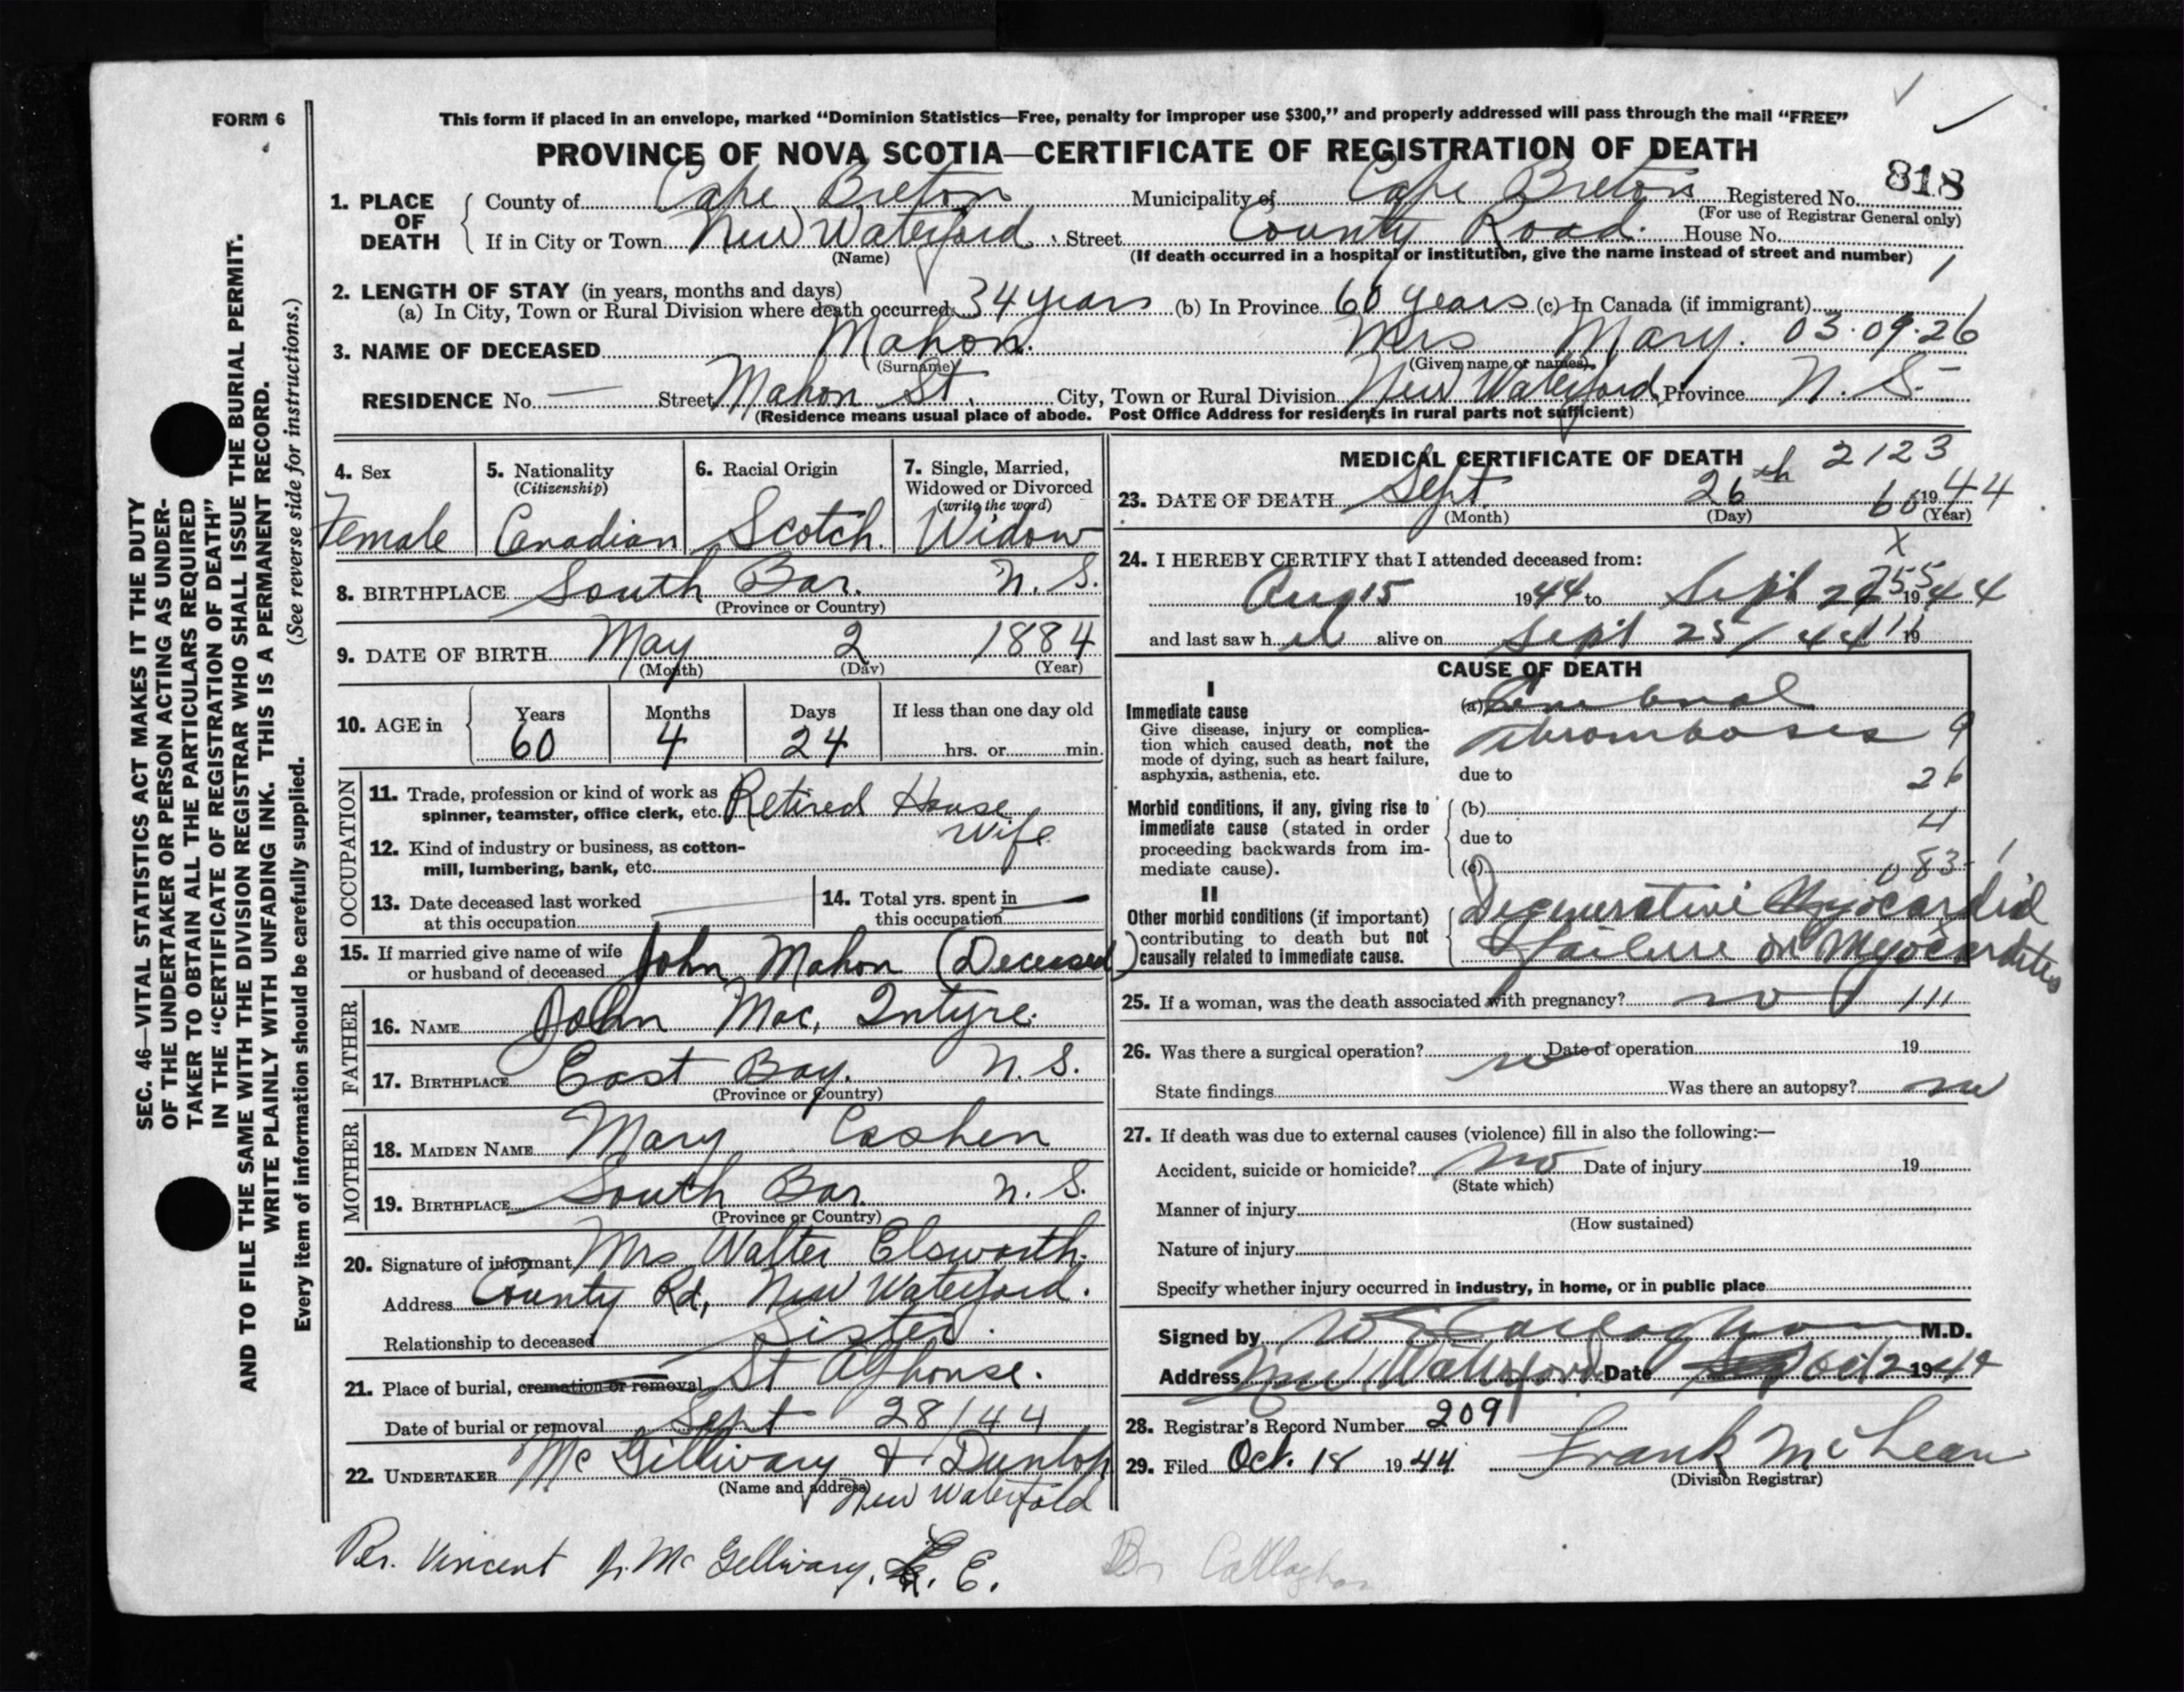 FORM 6
This form if placed in an envelope, marked “Dominion Statistics—Free, penalty for improper use $300,” and properly addressed will pass through the mail “FREE”
PROVINCE OF NOVA SCOTIA—CERTIFICATE OF REGISTRATION OF DEATH
818
1. PLACE OF DEATH { County of Cape Breton Municipality of Cape Breton Registered No.
(For use of Registrar General only)
If in City or Town New Waterford Street County Road. House No.
(Name) (If death occurred in a hospital or institution, give the name instead of street and number) 1
2. LENGTH OF STAY (in years, months and days)
(a) In City, Town or Rural Division where death occurred 34 years (b) In Province 60 years (c) In Canada (if immigrant)
3. NAME OF DECEASED Mahon. Mrs Mary. 03·09·26
(Surname) (Given name or names)
RESIDENCE No. — Street Mahon St. City, Town or Rural Division New Waterford Province N. S.
(Residence means usual place of abode. Post Office Address for residents in rural parts not sufficient)
4. Sex
Female
5. Nationality
(Citizenship)
Canadian
6. Racial Origin
Scotch.
7. Single, Married,
Widowed or Divorced
(write the word)
Widow
8. BIRTHPLACE South Bar. N. S.
(Province or Country)
9. DATE OF BIRTH May 2 1884
(Month) (Day) (Year)
10. AGE in { Years Months Days If less than one day old
60 4 24 hrs. or min.
OCCUPATION
11. Trade, profession or kind of work as
spinner, teamster, office clerk, etc. Retired House
Wife
12. Kind of industry or business, as cotton-
mill, lumbering, bank, etc.
13. Date deceased last worked
at this occupation
14. Total yrs. spent in
this occupation
15. If married give name of wife
or husband of deceased John Mahon (Deceased)
FATHER
16. NAME John Mac, Intyre.
17. BIRTHPLACE East Bay. N. S.
(Province or Country)
MOTHER
18. MAIDEN NAME Mary Cashen
19. BIRTHPLACE South Bar N. S.
(Province or Country)
20. Signature of informant Mrs Walter Elsworth.
Address County Rd, New Waterford.
Relationship to deceased Sister.
21. Place of burial, cremation or removal St Alphonse.
Date of burial or removal Sept 28/44
22. UNDERTAKER Mc Gillivary & Dunlop
(Name and address) New Waterford
Per. Vincent J. Mc Gillivary. L. E.
MEDICAL CERTIFICATE OF DEATH 2123
23. DATE OF DEATH Sept. 26th 60 1944
(Month) (Day) (Year)
x
24. I HEREBY CERTIFY that I attended deceased from:
Aug 15 1944 to Sept 1944
and last saw h er alive on Sept 25/44 19
CAUSE OF DEATH
I
Immediate cause
Give disease, injury or complica-
tion which caused death, not the
mode of dying, such as heart failure,
asphyxia, asthenia, etc.
(a) Cerebral
Thrombosis 9
due to 26
Morbid conditions, if any, giving rise to
immediate cause (stated in order
proceeding backwards from im-
mediate cause).
(b)
due to 4
(c) 083- 1
II
Other morbid conditions (if important)
contributing to death but not
causally related to immediate cause.
Degenerative Myocardial
failure or Myocarditis
25. If a woman, was the death associated with pregnancy? no 111
26. Was there a surgical operation? no Date of operation 19
State findings Was there an autopsy? no
27. If death was due to external causes (violence) fill in also the following:—
Accident, suicide or homicide? no Date of injury 19
(State which)
Manner of injury
(How sustained)
Nature of injury
Specify whether injury occurred in industry, in home, or in public place
Signed by Callaghan M.D.
Address New Waterford Date Oct 2 1944
28. Registrar's Record Number 209
29. Filed Oct. 18 1944 Frank McLean
(Division Registrar)
Dr Callaghan
SEC. 46—VITAL STATISTICS ACT MAKES IT THE DUTY
OF THE UNDERTAKER OR PERSON ACTING AS UNDER-
TAKER TO OBTAIN ALL THE PARTICULARS REQUIRED
IN THE “CERTIFICATE OF REGISTRATION OF DEATH”
AND TO FILE THE SAME WITH THE DIVISION REGISTRAR WHO SHALL ISSUE THE BURIAL PERMIT.
WRITE PLAINLY WITH UNFADING INK. THIS IS A PERMANENT RECORD.
Every item of information should be carefully supplied. (See reverse side for instructions.)